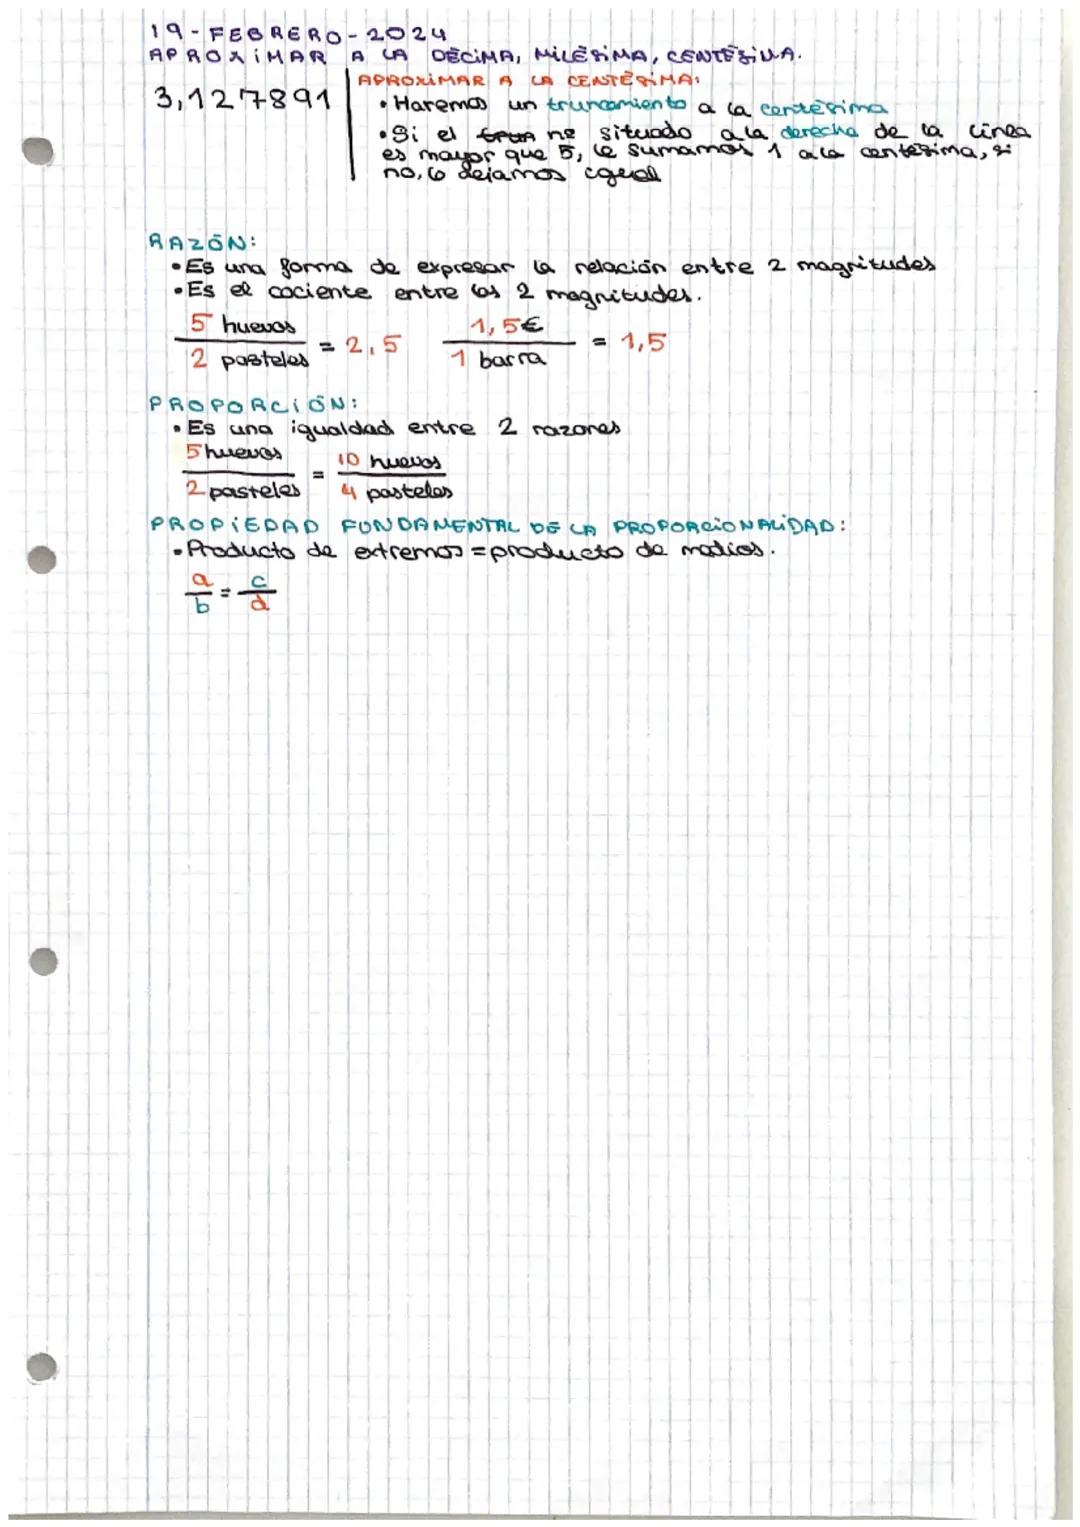 19-FEBRERO-2024
APROXIMAR A LA DÉCIMA, MILÉSIMA, CENTÉSIMA.
3,127891
APROXIMAR A LA CENTÉSIMA:
• Haremos un truncamiento a la centésima
• Si el nº situado a la derecha de la línea
es mayor que 5, le sumamos 1 a la centésima, si
no, lo dejamos igual
RAZÓN:
• Es una forma de expresar la relación entre 2 magnitudes
• Es el cociente entre las 2 magnitudes.
5 huevos / 2 pasteles = 2,5 1,5€ / 1 barra = 1,5
PROPORCIÓN:
• Es una igualdad entre 2 razones
5 huevos / 2 pasteles = 10 huevos / 4 pasteles
PROPIEDAD FUNDAMENTAL DE LA PROPORCIONALIDAD:
• Producto de extremos = producto de medios.
a/b = c/d